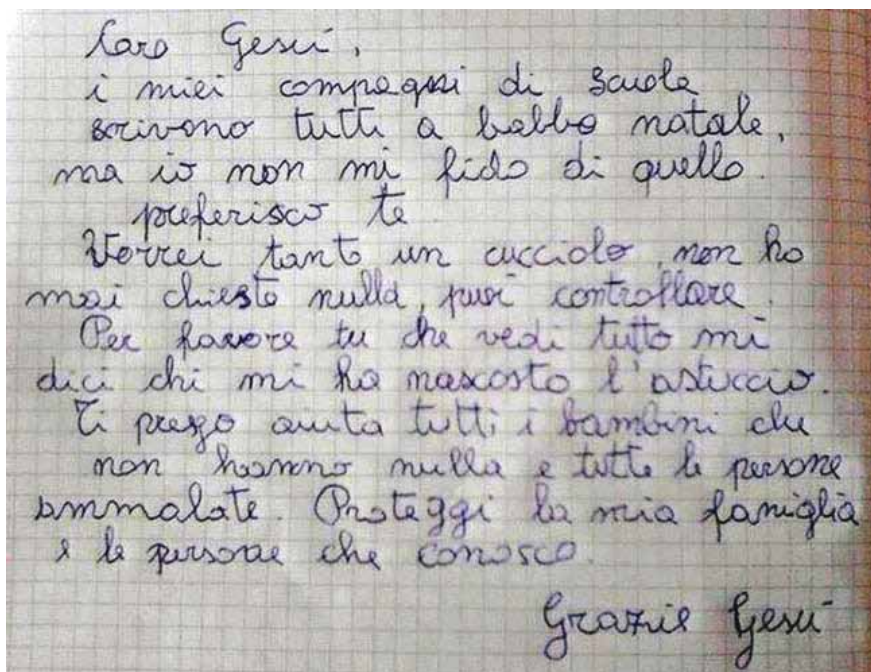 Caro Gesù,
i miei compagni di scuola
scrivono tutti a babbo natale,
ma io non mi fido di quello.
preferisco te.
Vorrei tanto un cucciolo, non ho
mai chiesto nulla, puoi controllare.
Per favore tu che vedi tutto mi
dici chi mi ha nascosto l'astuccio.
Ti prego aiuta tutti i bambini che
non hanno nulla e tutte le persone
ammalate. Proteggi la mia famiglia
e le persone che conosco.
Grazie Gesù